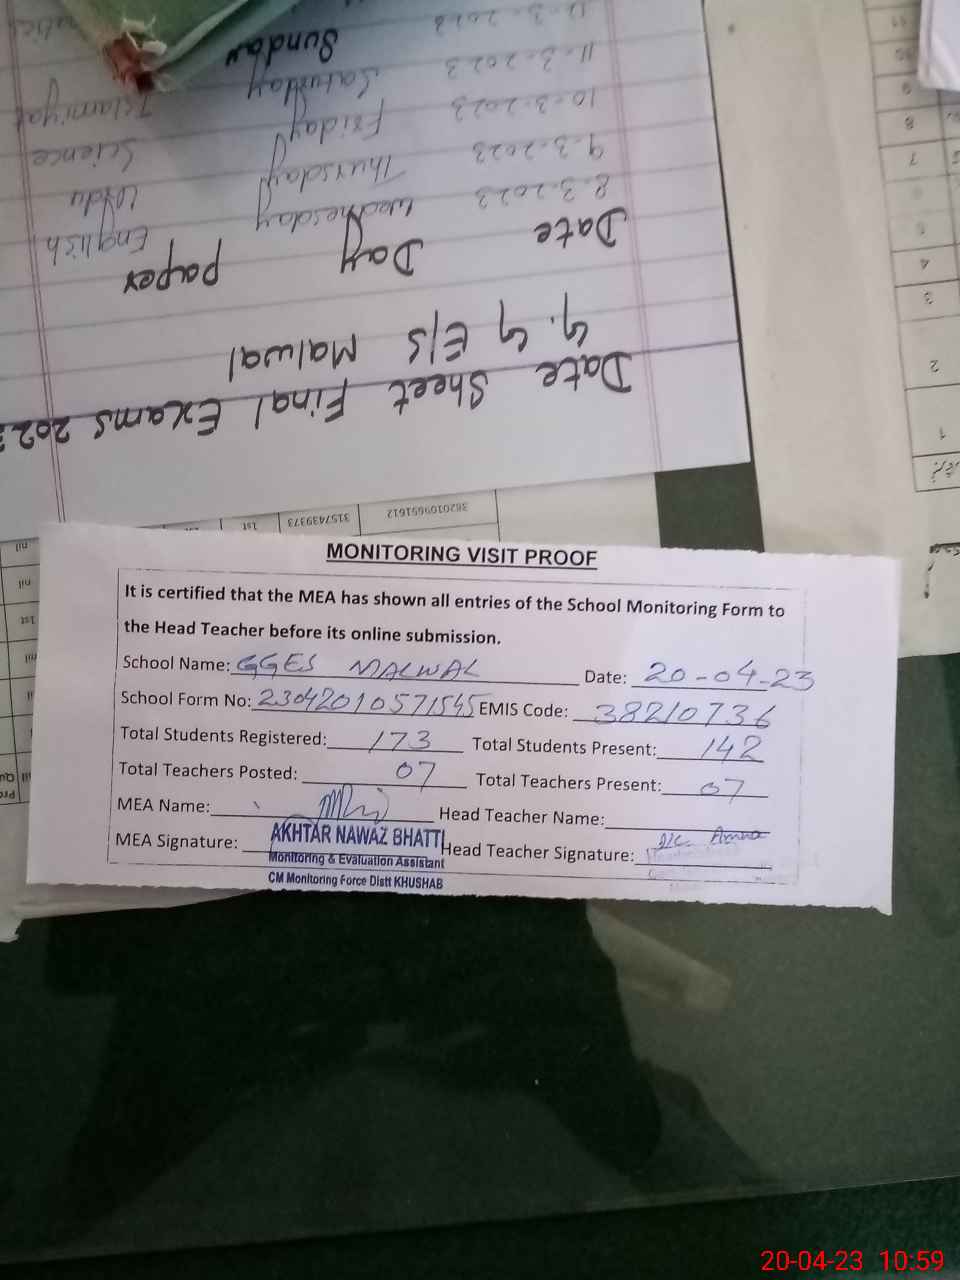 MONITORING VISIT PROOF
It is certified that the MEA has shown all entries of the School Monitoring Form to
the Head Teacher before its online submission.
School Name: GGES MALWAL Date: 20-04-23
School Form No: 23042010571545 EMIS Code: 38210736
Total Students Registered: 173 Total Students Present: 142
Total Teachers Posted: 07 Total Teachers Present: 07
MEA Name: Head Teacher Name:
MEA Signature: AKHTAR NAWAZ BHATTI Head Teacher Signature:
Monitoring & Evaluation Assistant
CM Monitoring Force Distt KHUSHAB
Date Sheet Final Exams 202
G. G E/S Malwal
Date Day paper
8-3-2023 Wednesday English
9-3-2023 Thursday Urdu
10-3-2023 Friday Science
11-3-2023 Saturday Islamiyat
Sunday
3157439373
1st
nil
nil
1st
1
2
3
4
7
8
9
10
11
20-04-23 10:59